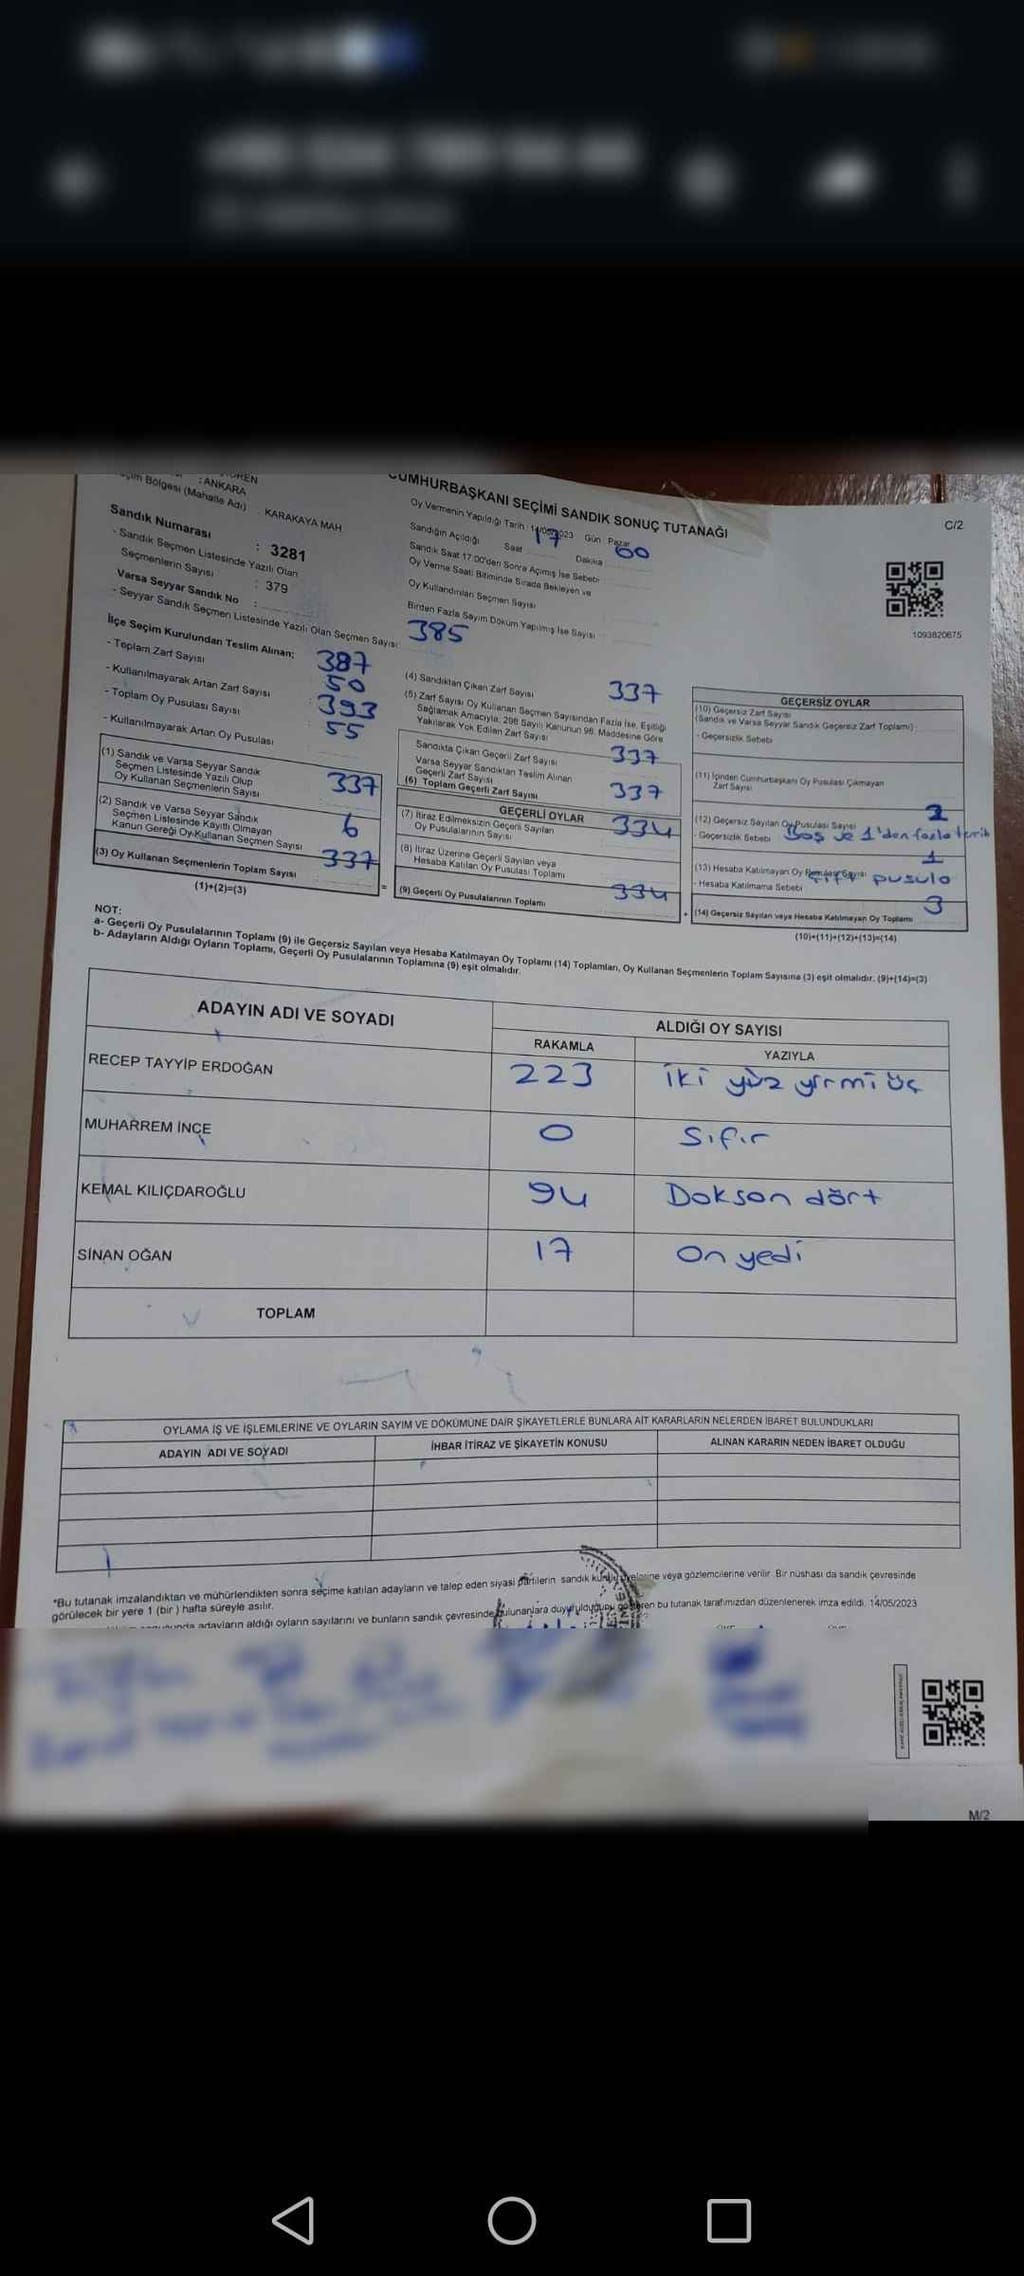 : ANKARA
Seçim Bölgesi (Mahalle Adı) : KARAKAYA MAH
Sandık Numarası : 3281
- Sandık Seçmen Listesinde Yazılı Olan
Seçmenlerin Sayısı : 379
Varsa Seyyar Sandık No :
- Seyyar Sandık Seçmen Listesinde Yazılı Olan Seçmen Sayısı
CUMHURBAŞKANI SEÇİMİ SANDIK SONUÇ TUTANAĞI
Oy Vermenin Yapıldığı Tarih : 14/05/2023 Gün : Pazar
Sandığın Açıldığı Saat 17 Dakika 00
Sandık Saat 17.00'den Sonra Açımış İse Sebebi
Oy Verme Saati Bitiminde Sırada Bekleyen ve
Oy Kullandırılan Seçmen Sayısı
Birden Fazla Sayım Döküm Yapılmış İse Sayısı
385
C/2
1093820675
İlçe Seçim Kurulundan Teslim Alınan;
- Toplam Zarf Sayısı 387
- Kullanılmayarak Artan Zarf Sayısı 50
- Toplam Oy Pusulası Sayısı 393
- Kullanılmayarak Artan Oy Pusulası 55
(1) Sandık ve Varsa Seyyar Sandık
Seçmen Listesinde Yazılı Olup
Oy Kullanan Seçmenlerin Sayısı 337
(2) Sandık ve Varsa Seyyar Sandık
Seçmen Listesinde Kayıtlı Olmayan
Kanun Gereği Oy Kullanan Seçmen Sayısı 6
(3) Oy Kullanan Seçmenlerin Toplam Sayısı 337
(1)+(2)=(3)
(4) Sandıktan Çıkan Zarf Sayısı 337
(5) Zarf Sayısı Oy Kullanan Seçmen Sayısından Fazla İse, Eşitliği
Sağlamak Amacıyla, 298 Sayılı Kanunun 98. Maddesine Göre
Yakılarak Yok Edilen Zarf Sayısı
Sandıkta Çıkan Geçerli Zarf Sayısı 337
Varsa Seyyar Sandıktan Teslim Alınan
Geçerli Zarf Sayısı
(6) Toplam Geçerli Zarf Sayısı 337
GEÇERLİ OYLAR
(7) İtiraz Edilmeksizin Geçerli Sayılan
Oy Pusulalarının Sayısı 334
(8) İtiraz Üzerine Geçerli Sayılan veya
Hesaba Katılan Oy Pusulası Toplamı
(9) Geçerli Oy Pusulalarının Toplamı 334
GEÇERSİZ OYLAR
(10) Geçersiz Zarf Sayısı
(Sandık ve Varsa Seyyar Sandık Geçersiz Zarf Toplamı)
- Geçersizlik Sebebi
(11) İçinden Cumhurbaşkanı Oy Pusulası Çıkmayan
Zarf Sayısı
(12) Geçersiz Sayılan Oy Pusulası Sayısı 2
- Geçersizlik Sebebi Boş ve 1'den fazla tercih
(13) Hesaba Katılmayan Oy Pusulası Sayısı 1
- Hesaba Katılmama Sebebi Çift pusula
(14) Geçersiz Sayılan veya Hesaba Katılmayan Oy Toplamı 3
(10)+(11)+(12)+(13)=(14)
NOT:
a- Geçerli Oy Pusulalarının Toplamı (9) ile Geçersiz Sayılan veya Hesaba Katılmayan Oy Toplamı (14) Toplamları, Oy Kullanan Seçmenlerin Toplam Sayısına (3) eşit olmalıdır. (9)+(14)=(3)
b- Adayların Aldığı Oyların Toplamı, Geçerli Oy Pusulalarının Toplamına (9) eşit olmalıdır.
ADAYIN ADI VE SOYADI
ALDIĞI OY SAYISI
RAKAMLA YAZIYLA
RECEP TAYYİP ERDOĞAN 223 iki yüz yirmi üç
MUHARREM İNCE 0 Sıfır
KEMAL KILIÇDAROĞLU 94 Doksan dört
SİNAN OĞAN 17 On yedi
TOPLAM
OYLAMA İŞ VE İŞLEMLERİNE VE OYLARIN SAYIM VE DÖKÜMÜNE DAİR ŞİKAYETLERLE BUNLARA AİT KARARLARIN NELERDEN İBARET BULUNDUKLARI
ADAYIN ADI VE SOYADI İHBAR İTİRAZ VE ŞİKAYETİN KONUSU ALINAN KARARIN NEDEN İBARET OLDUĞU
*Bu tutanak imzalandıktan ve mühürlendikten sonra seçime katılan adayların ve talep eden siyasi partilerin sandık kurulu üyelerine veya gözlemcilerine verilir. Bir nüshası da sandık çevresinde
görülecek bir yere 1 (bir) hafta süreyle asılır.
adayların aldığı oyların sayılarını ve bunların sandık çevresinde bulunanlara duyurulduğunu gösteren bu tutanak tarafımızdan düzenlenerek imza edildi. 14/05/2023
M/2